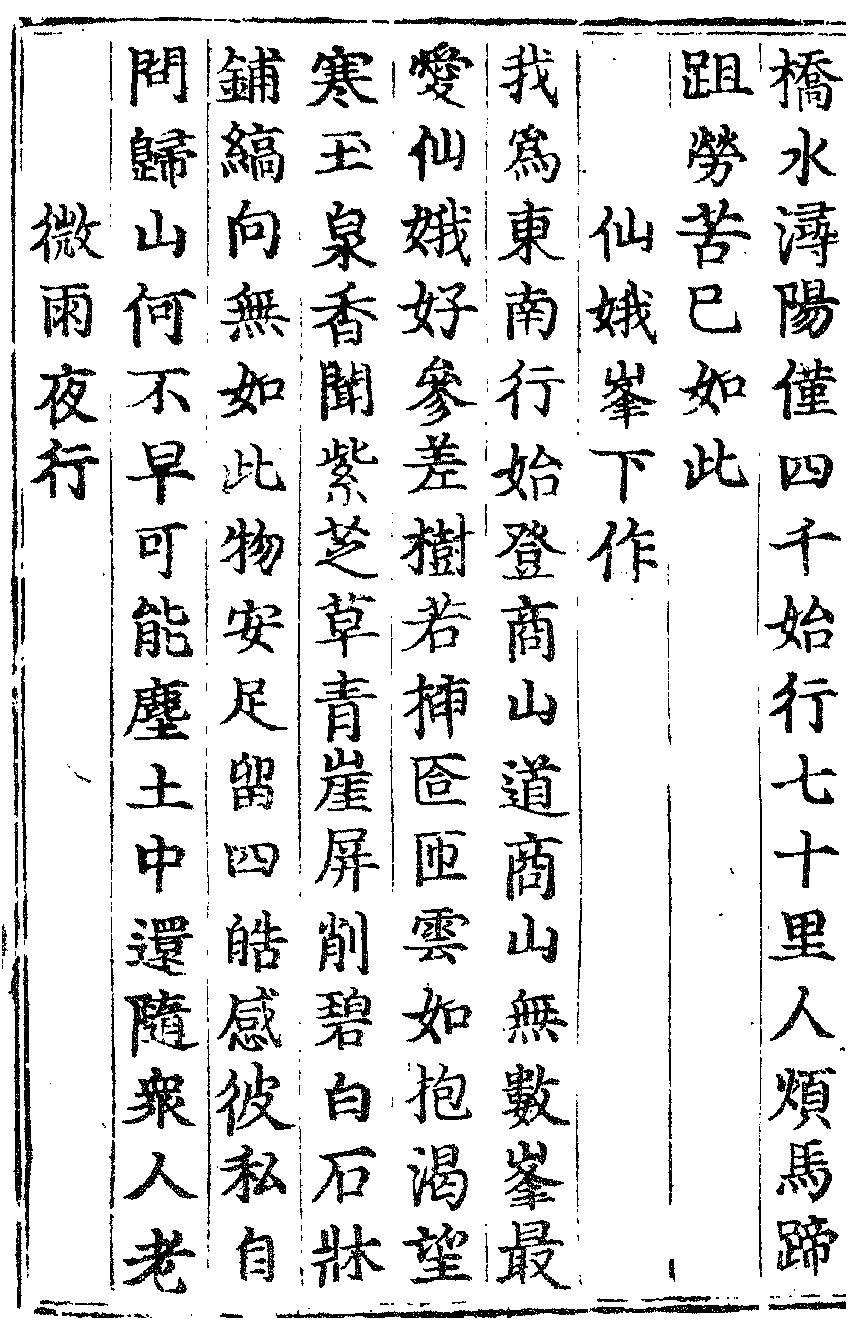 橋水潯陽僅四千始行七十里人煩馬蹄
跙勞苦已如此
仙娥峯下作
我爲東南行始登商山道商山無數峯最
愛仙娥好參差樹若揷匼匝雲如抱渴望
寒玉泉香聞紫芝草青崖屏削碧白石牀
鋪縞向無如此物安足留四皓感彼私自
問歸山何不早可能塵土中還隨衆人老
微雨夜行